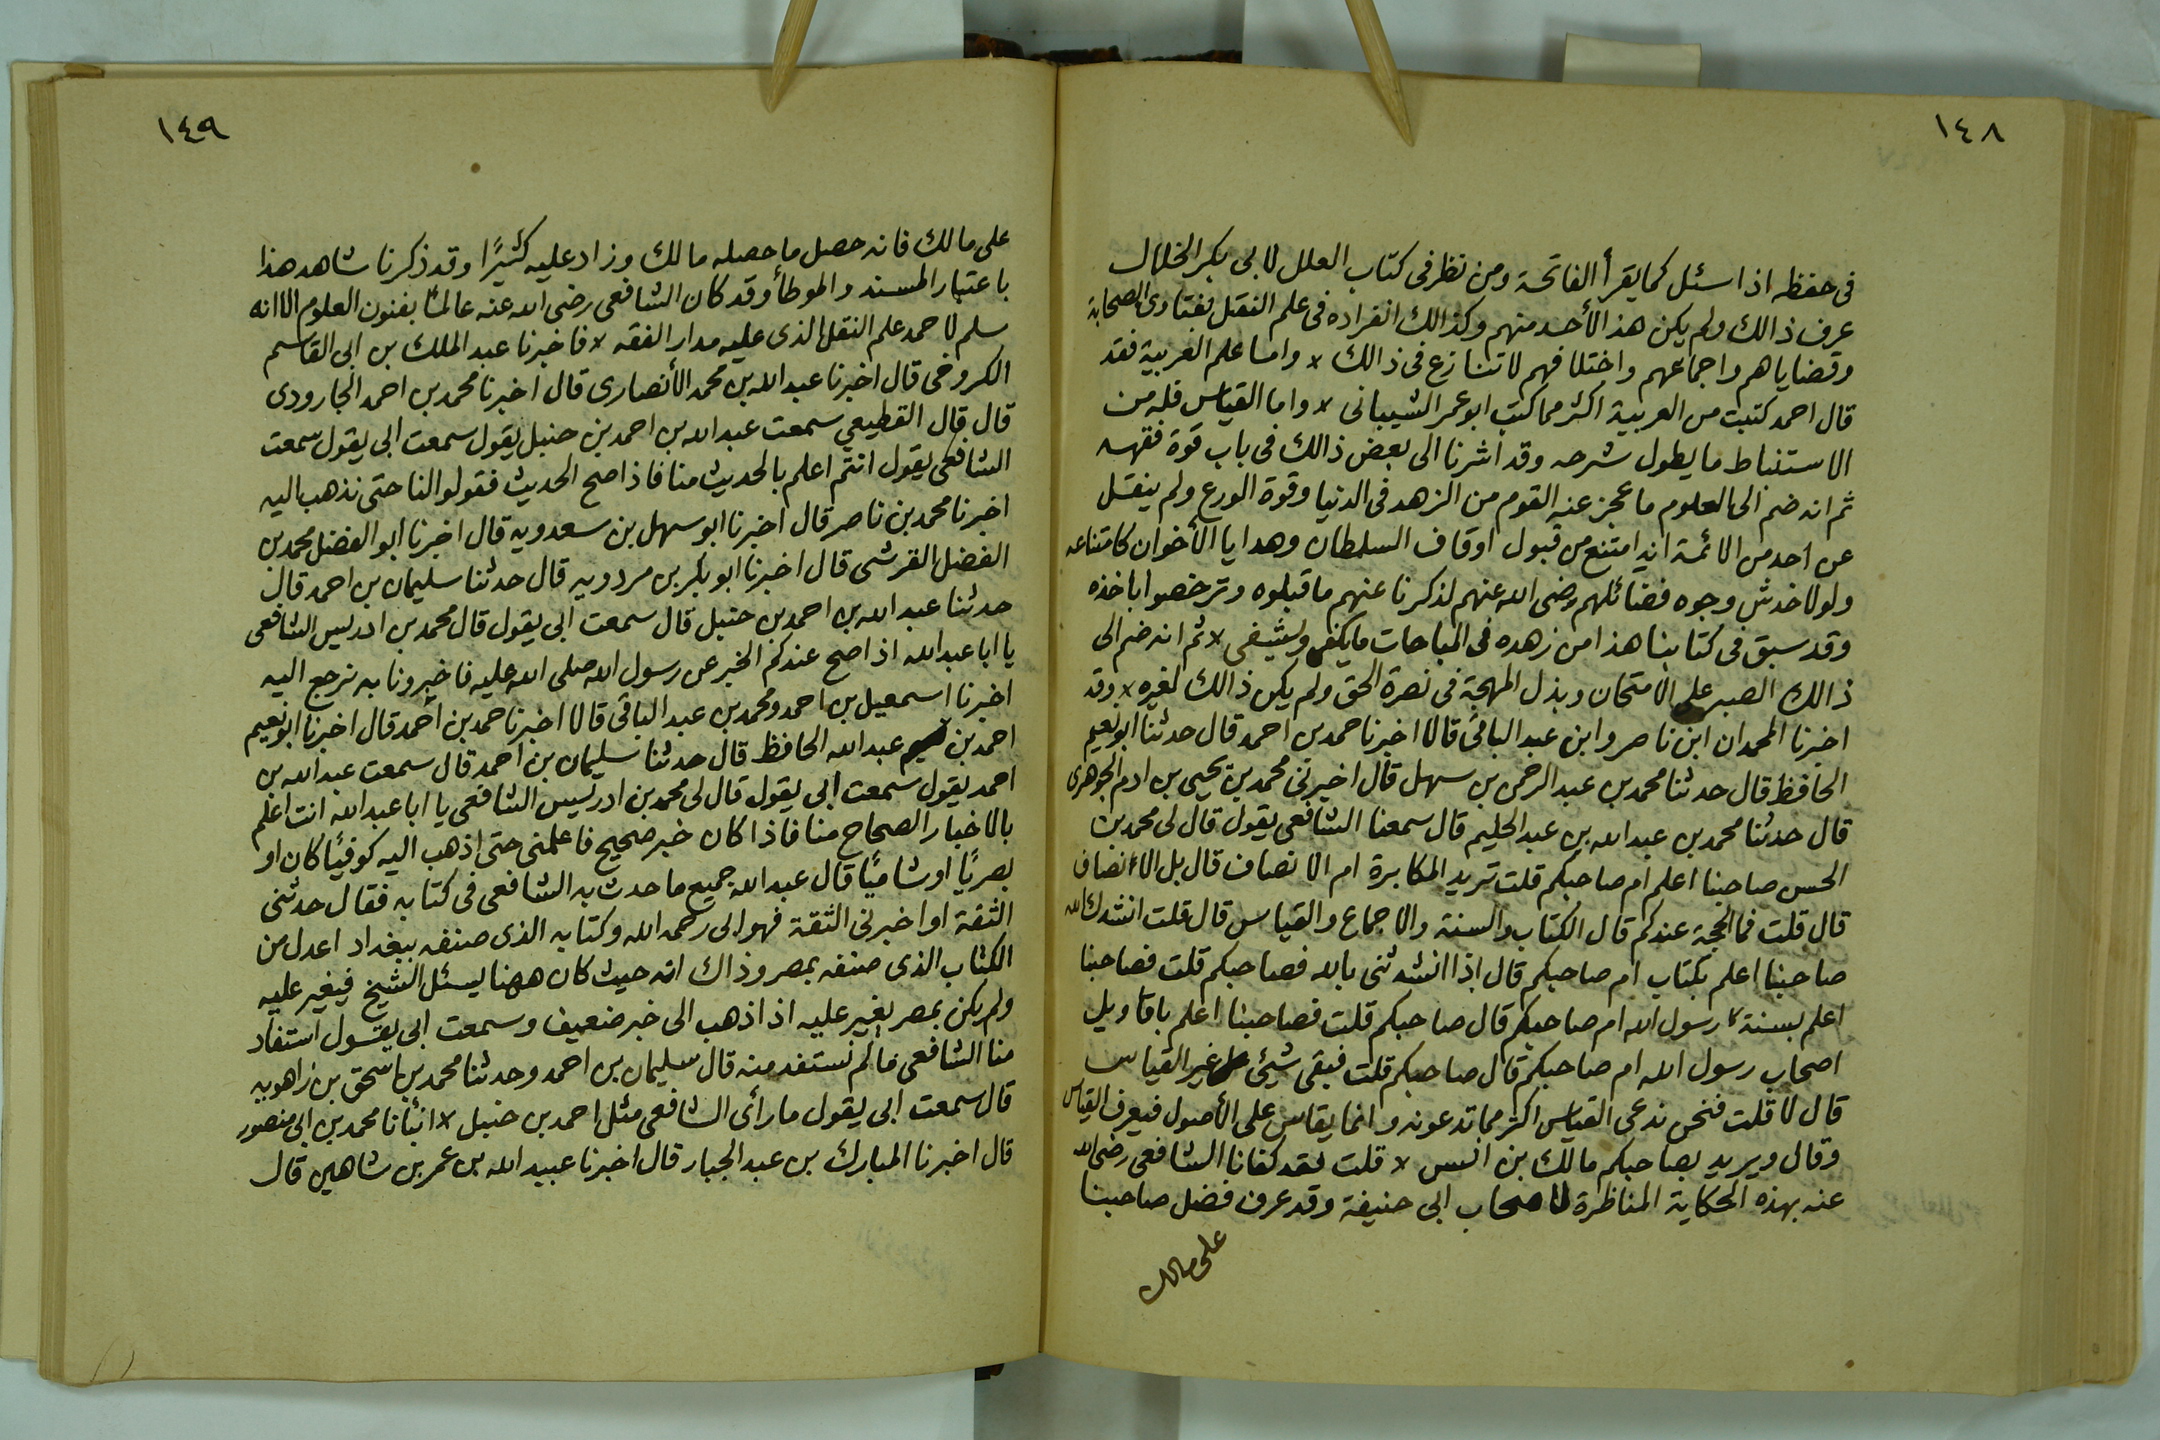 ١٤٨
فى حفظه اذا سئل كما يقرأ الفاتحة ومن نظر فى كتاب العلل لابى بكر الخلال
عرف ذالك ولم يكن هذا لأحد منهم وكذالك انفراده فى علم النقل بفتاوى الصحابة
وقضاياهم واجماعهم واختلافهم لا تنازع فى ذالك واما علم العربية فقد
قال احمد كتبت من العربية اكثر مما كتب ابو عمر الشيبانى واما القياس فله من
الاستنباط ما يطول شرحه وقد اشرنا الى بعض ذالك فى باب قوة فقهه
ثم انه ضم الى العلوم ما عجز عنه القوم من الزهد فى الدنيا وقوة الورع ولم ينقل
عن احد من الائمة انه امتنع من قبول اوقاف السلطان وهدايا الأخوان كامتناعه
ولولا خدش وجوه فضائلهم رضى الله عنهم لذكرنا عنهم ما قبلوه وترخصوا باخذه
وقد سبق فى كتابنا هذا من زهده فى المباحات ما يكفى ويشفى ثم انه ضم الى
ذالك الصبر على الامتحان وبذل المهجة فى نصرة الحق ولم يكن ذالك لغيره وقد
اخبرنا المحمدان ابن ناصر وابن عبد الباقى قالا اخبرنا حمد بن احمد قال حدثنا ابو نعيم
الحافظ قال حدثنا محمد بن عبد الرحمن بن سهل قال اخبرنى محمد بن يحيى بن ادم الجوهرى
قال حدثنا محمد بن عبد الله بن عبد الحليم قال سمعنا الشافعى يقول قال لى محمد بن
الحسن صاحبنا اعلم ام صاحبكم قلت تريد المكابرة ام الانصاف قال بل الانصاف
قال قلت فما الحجة عندكم قال الكتاب والسنة والاجماع والقياس قال قلت انشدك الله
صاحبنا اعلم بكتاب ام صاحبكم قال اذا انشدتنى بالله فصاحبكم قلت فصاحبنا
اعلم بسنة رسول الله ام صاحبكم قال صاحبكم قلت فصاحبنا اعلم باقاويل
اصحاب رسول الله ام صاحبكم قال صاحبكم قلت فبقى شيئ غير القياس
قال لا قلت فنحن ندعى القياس اكثر مما تدعونه وانما يقاس على الأصول فيعرف القياس
وقال ويريد بصاحبكم مالك بن انس قلت لقد كفانا الشافعى رضى الله
عنه بهذه الحكاية المناظرة لاصحاب ابى حنيفة وقد عرف فضل صاحبنا
على مالك
١٤٩
على مالك فانه حصل ما حصله مالك وزاد عليه كثيرًا وقد ذكرنا شاهد هذا
باعتبار المسند والموطأ وقد كان الشافعى رضى الله عنه عالمًا بفنون العلوم الا انه
سلم لاحمد علم النقل الذى عليه مدار الفقه فاخبرنا عبد الملك بن ابى القاسم
الكروخى قال اخبرنا عبد الله بن محمد الأنصارى قال اخبرنا محمد بن احمد الجارودى
قال قال القطيعي سمعت عبد الله بن احمد بن حنبل يقول سمعت ابى يقول سمعت
الشافعى يقول انتم اعلم بالحديث منا فاذا صح الحديث فقولوا لنا حتى نذهب اليه
اخبرنا محمد بن ناصر قال اخبرنا ابو سهل بن سعدويه قال اخبرنا ابو الفضل محمد بن
الفضل القرشى قال اخبرنا ابو بكر بن مردويه قال حدثنا سليمان بن احمد قال
حدثنا عبد الله بن احمد بن حنبل قال سمعت ابى يقول قال محمد بن ادريس الشافعى
يا ابا عبد الله اذا صح عندكم الخبر عن رسول الله صلى الله عليه فاخبرونا به نرجع اليه
اخبرنا اسمعيل بن احمد ومحمد بن عبد الباقى قالا اخبرنا حمد بن أحمد قال اخبرنا ابو نعيم
احمد بن عبد الله الحافظ قال حدثنا سليمان بن احمد قال سمعت عبد الله بن
احمد يقول سمعت ابى يقول قال لى محمد بن ادريس الشافعى يا ابا عبد الله انت اعلم
بالاخبار الصحاح منا فاذا كان خبر صحيح فاعلمنى حتى اذهب اليه كوفيًا كان او
بصريًا او شاميًا قال عبد الله جميع ما حدث به الشافعى فى كتابه فقال حدثنى
الثقة او اخبرنى الثقة فهو ابى رحمه الله وكتابه الذى صنفه ببغداد اعدل من
الكتاب الذى صنفه بمصر وذاك انه حيث كان ههنا يسئل الشيخ فيغير عليه
ولم يكن بمصر يغير عليه اذا ذهب الى خبر ضعيف وسمعت ابى يقول استفاد
منا الشافعى ما لم نستفد منه قال سليمان بن احمد وحدثنا محمد بن اسحق بن راهويه
قال سمعت ابى يقول ما رأى الشافعى مثل احمد بن حنبل انبأنا محمد بن ابى منصور
قال اخبرنا المبارك بن عبد الجبار قال اخبرنا عبيد الله بن عمر بن شاهين قال